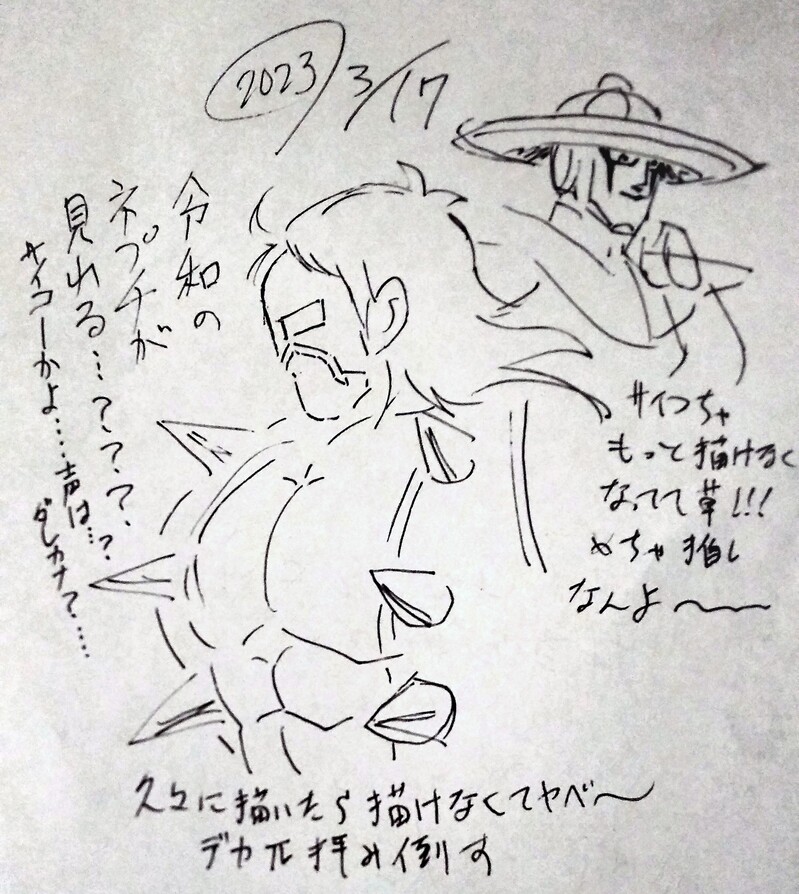 2023/3/17
令和の
ネプチが
見れる…?????
サイコーかよ…声は…?
ダレカナ?……
サイコちゃ
もっと描けなく
なってて草!!!
めちゃ推し
なんよ〜
久々に描いたら描けなくてヤベ〜
デカπ拝み倒す